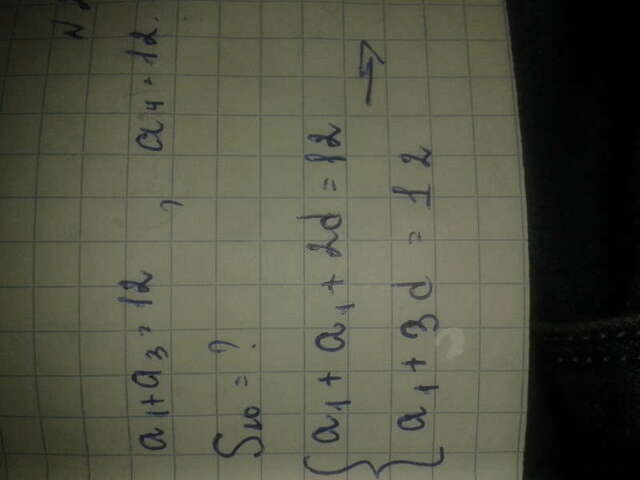 a₁+a₃=12, a₄=12.
S₁₀=?
{ a₁+a₁+2d=12 →
a₁+3d=12